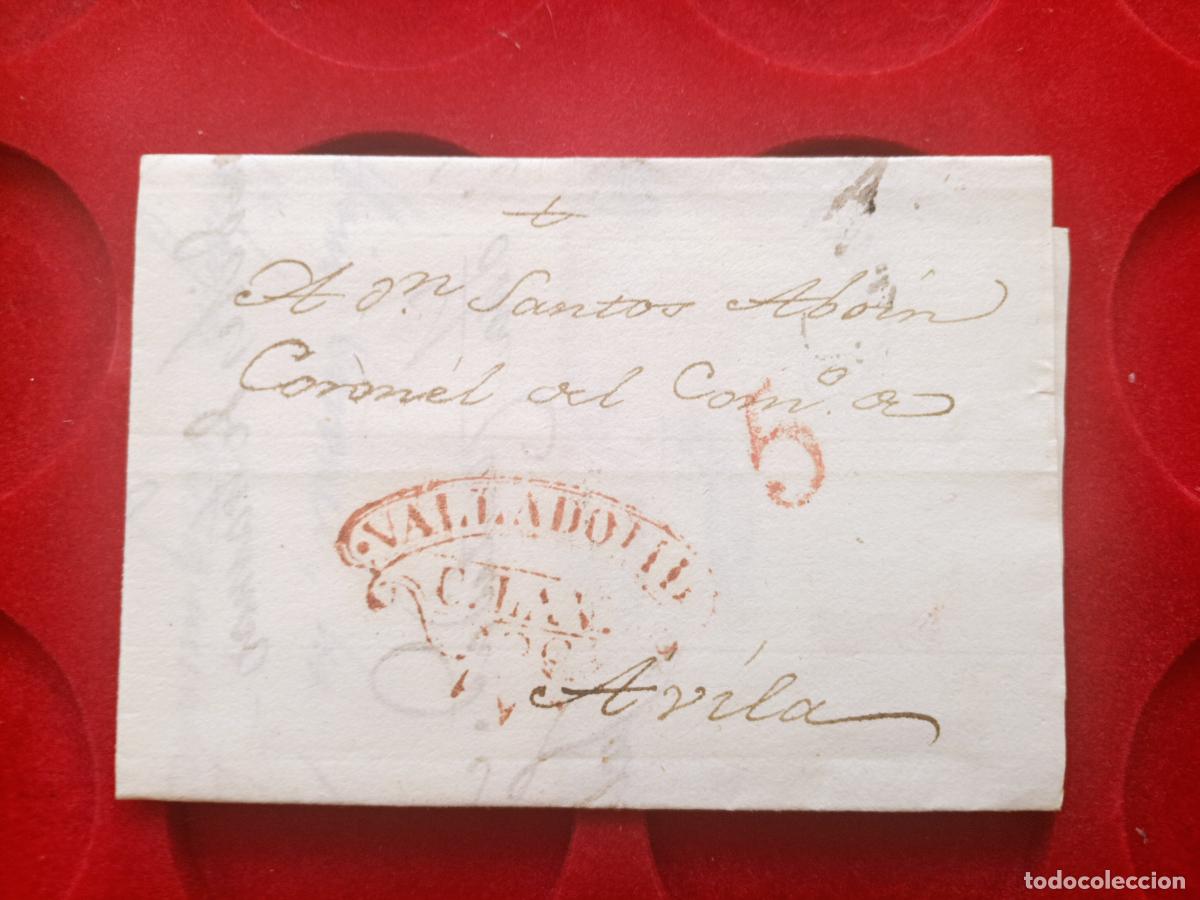 A dn. Santos Aboín
Coronél del Como. de
5
VALLADOLID
C. LA V.
Avíla
todocoleccion